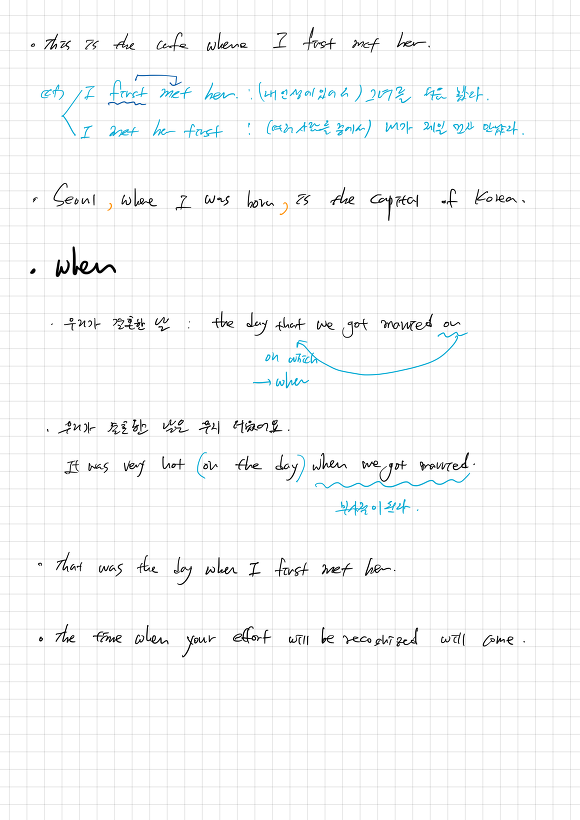 • This is the cafe where I first met her.
cf) I first met her. : (내 인생에 있어서) 그녀를 처음 봤다.
I met her first : (여러 사람들 중에서) 내가 제일 먼저 만났다.
• Seoul, where I was born, is the capital of Korea.
• when
· 우리가 결혼한 날 : the day that we got married on
on which
→ when
· 우리가 결혼한 날은 무지 더웠어요.
It was very hot (on the day) when we got married.
부사절이 된다.
• That was the day when I first met her.
• The time when your effort will be recognized will come.